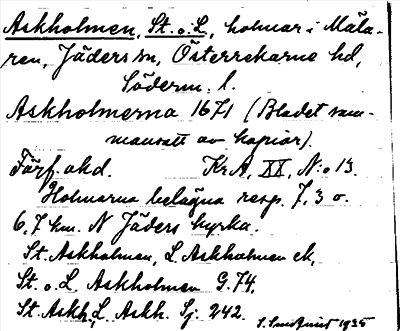 Askholmen, St. o. L., holmar i Mäla-
ren, Jäders sn, Österrekarne hd,
Söderm. l.
Askholmerna 1671 (Bladet sam-
mansatt av kopior).
Färf. akd. Kr A, XX, N:o 13.
Holmarna belägna resp. 7,3 o.
6,7 km. N Jäders kyrka.
St. Askholmen, L. Askholmen ek,
St. o. L. Askholmen G. 74,
St. Askh., L. Askh. Sj. 242.
1935